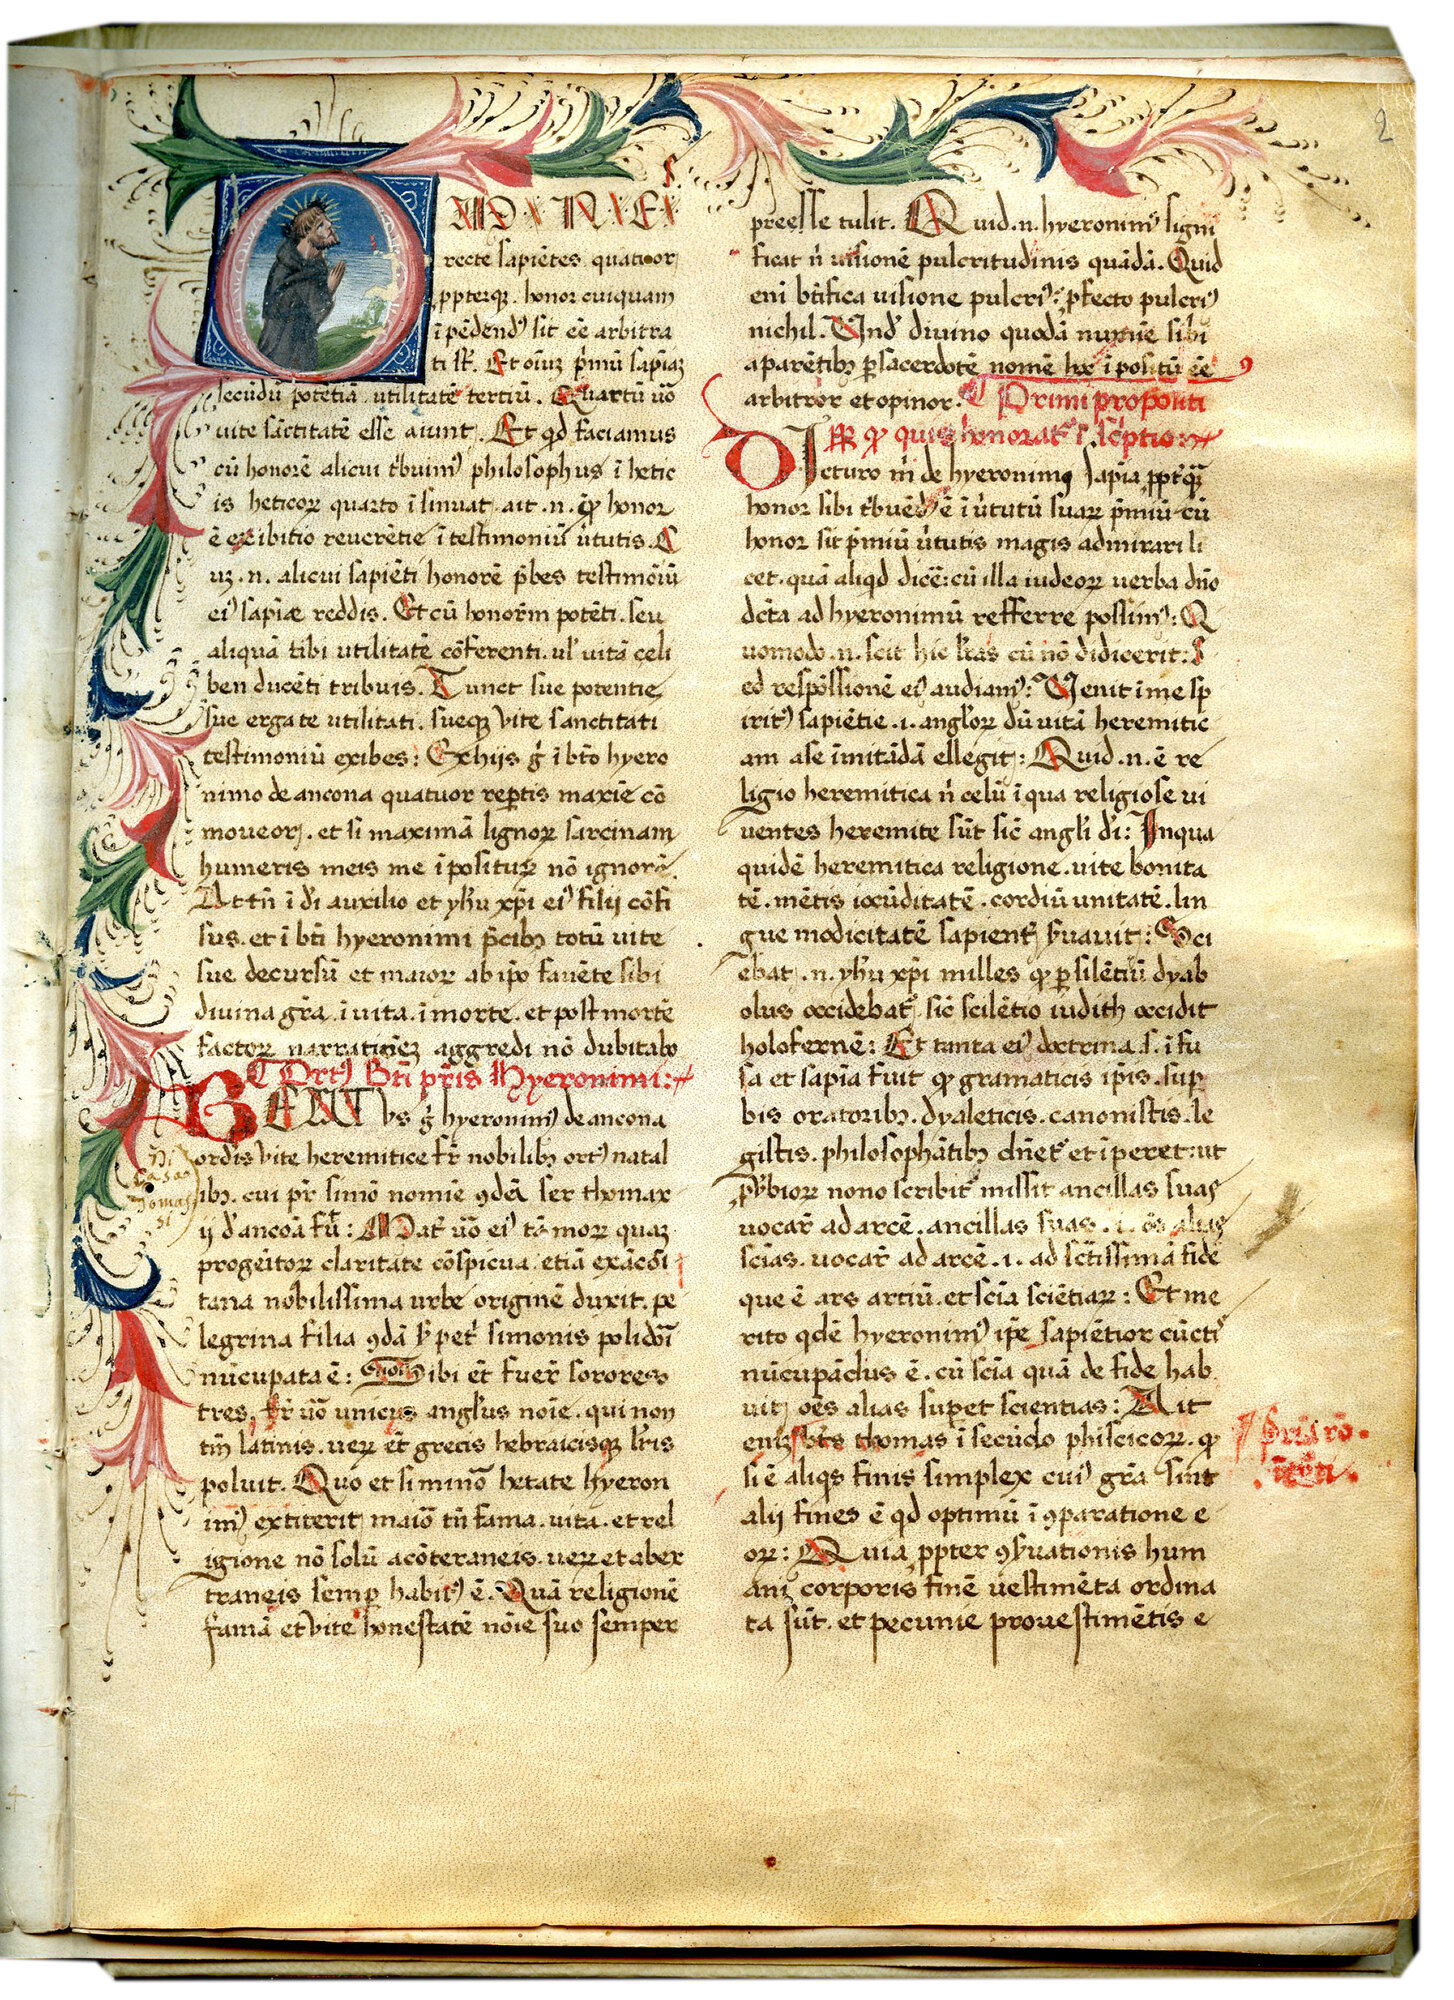 2
OMNES
recte sapiētes quatuor
ppterq̄. honor cuiquam
īpēdendꝰ sit eē arbitra
ti st̄. Et oīuꝫ p̄mū sapiāꝫ
secūdū potētiā. utilitatē tertiū. Quartū uō
uite sāctitatē esse aiunt. Et qd faciamus
cū honorē alicui t'buimꝰ philosophus ī hetic
is heticoꝝ quarto īsinuat. ait .n. ꝙ honor
ē exibitio reuerētie ī testimoniū u'tutis. C
uꝫ .n. alicui sapiēti honorē p̄bes testimōiū
eiꝰ sapiæ reddis. Et cū honorem potēti. seu
aliquā tibi utilitatē cōferenti. ul' uitā celi
ben ducēti tribuis. Tunct sue potentie
sue erga te utilitati. sueqꝫ vite sanctitati
testimoniū exibes: Ex hijs g̊ ī bt̄o hyero
nimo de ancona quatuor rep̄tis maxīe cō
moueor. et si maximā lignoꝝ sarcinam
humeris meis me īposituꝝ nō ignorē.
Attn̄ ī d'i auxilio et yh'u xp̄i eiꝰ filij cōfi
sus. et ī bt̄i hyeronimi p̄cibꝫ totū uite
sue decursū et maioꝝ ab ip̄o fauēte sibi
diuina gr̄a. ī uita. ī morte. et post mortē
factoꝝ narrationeꝫ aggredi nō dubitabo
Ortꝰ Bt̄i pr̄is Hyeronimi:
BEATVS g̊ hyeronimꝰ de ancona
ordīs vite heremitice fr̄ nobilibꝫ ortꝰ natal
ibꝫ. cui pr̄ simō nomīe ꝯdā ser thomax
ij d' ancoā fū: Mat' uō eiꝰ tā moꝝ quaꝫ
progeītoꝝ claritate cōspicua. etiā exācōi
tana nobilissima urbe originē duxit. pe
legrina filia ꝯdā s' pet' simonis polidōi
nūcupata ē: Sibi ēt fuer̄ sorores
tres. fr̄ uō unicus angl'us noīe. qui non
tm̄ latinis. ueꝝ ēt grecis hebraicisqꝫ l'ris
poluit. Quo et si minō hetate hyeron
imꝰ extiterit maiō tn̄ fama. uita. et rel
igione nō solū acōteraneis. ueꝝ et ab ex
traneis semp̄ habitꝰ ē. Quā religionē
famā et vite honestatē nōie suo semper
Di
casa
Tomas
si
preesse tulit. Quid .n. hyeronimꝰ signi
ficat n̄ uisionē pulcritudinis quādā. Quid
eni bt̄ifica uisione pulcriꝰ: p̄fecto pulcriꝰ
nichil. Vnd' diuino quodā numīe sibi
aparētibꝫ p̄ sacerdotē nomē hoc īpositū eē
arbitror et opinor. Primi propoſiti
ꝙ quis honorat'
DIcturo m̄ de hyeronimꝰ sapīa ppt'quā
honor sibi t'buēdꝰ ē ī u'tutū suaꝝ p̄miū cū
honor sit p̄miū u'tutis magis admirari li
cet. quā aliqd dicē: cū illa iudeoꝝ uerba dn̄o
dc̄ta ad hyeronimū refferre possimꝰ: Q
uomodo .n. scit hic l'ras cū nō didicerit: S
ed respōssionē eiꝰ audiamꝰ: Venit ī me sp
iritꝰ sapiētie .i. angl'oꝝ dū uitā heremitic
am a se īmitādā ellegit: Quid .n. ē re
ligio heremitica n̄ celū ī qua religiose ui
uentes heremite sūt sic̄ angl'i d'i: In qua
quidē heremitica religione. uite bonita
tē. mētis iocūditatē. cordiū unitatē. lin
gue modicitatē sapient' s'uauit: Sci
ebat .n. yh'u xp̄i milles ꝙ p̄ silētiū dyab
olus occidebat' sic̄ scilētio iudith occidit
holofernē: Et tanta eiꝰ doctrina .s. ī fu
sa et sapīa fuit ꝙ gramaticis ip̄is. sup
bis oratoribꝫ. dyaleticis. canonistis. le
gistis. philosophātibꝫ dn̄et' et īperet: ut
p̄u'bioꝝ nono scribit' missit ancillas suas
uocar̄ ad arcē. ancillas suas .i. oēs alias
scīas. uocar̄ ad arcē .i. ad sc̄tissimā fidē
que ē ars artiū. et scīa sciētiaꝝ: Et me
rito qdē hyeronimꝰ ip̄e sapiētior cūcti'
nūcupādus ē. cū scīa quā de fide hab
uit oēs alias supet scientias: Ait
eniꝫ bt̄s thomas ī secūdo phisicoꝝ. ꝙ
si ē aliqs finis simplex cuiꝰ gr̄a sint
alij fines ē qd optimū ī ꝯparatione e
oꝝ: Quia ppter ꝯs'uationis hum
ani corporis finē uestimēta ordina
ta sūt. et pecunie pro uestimētis e